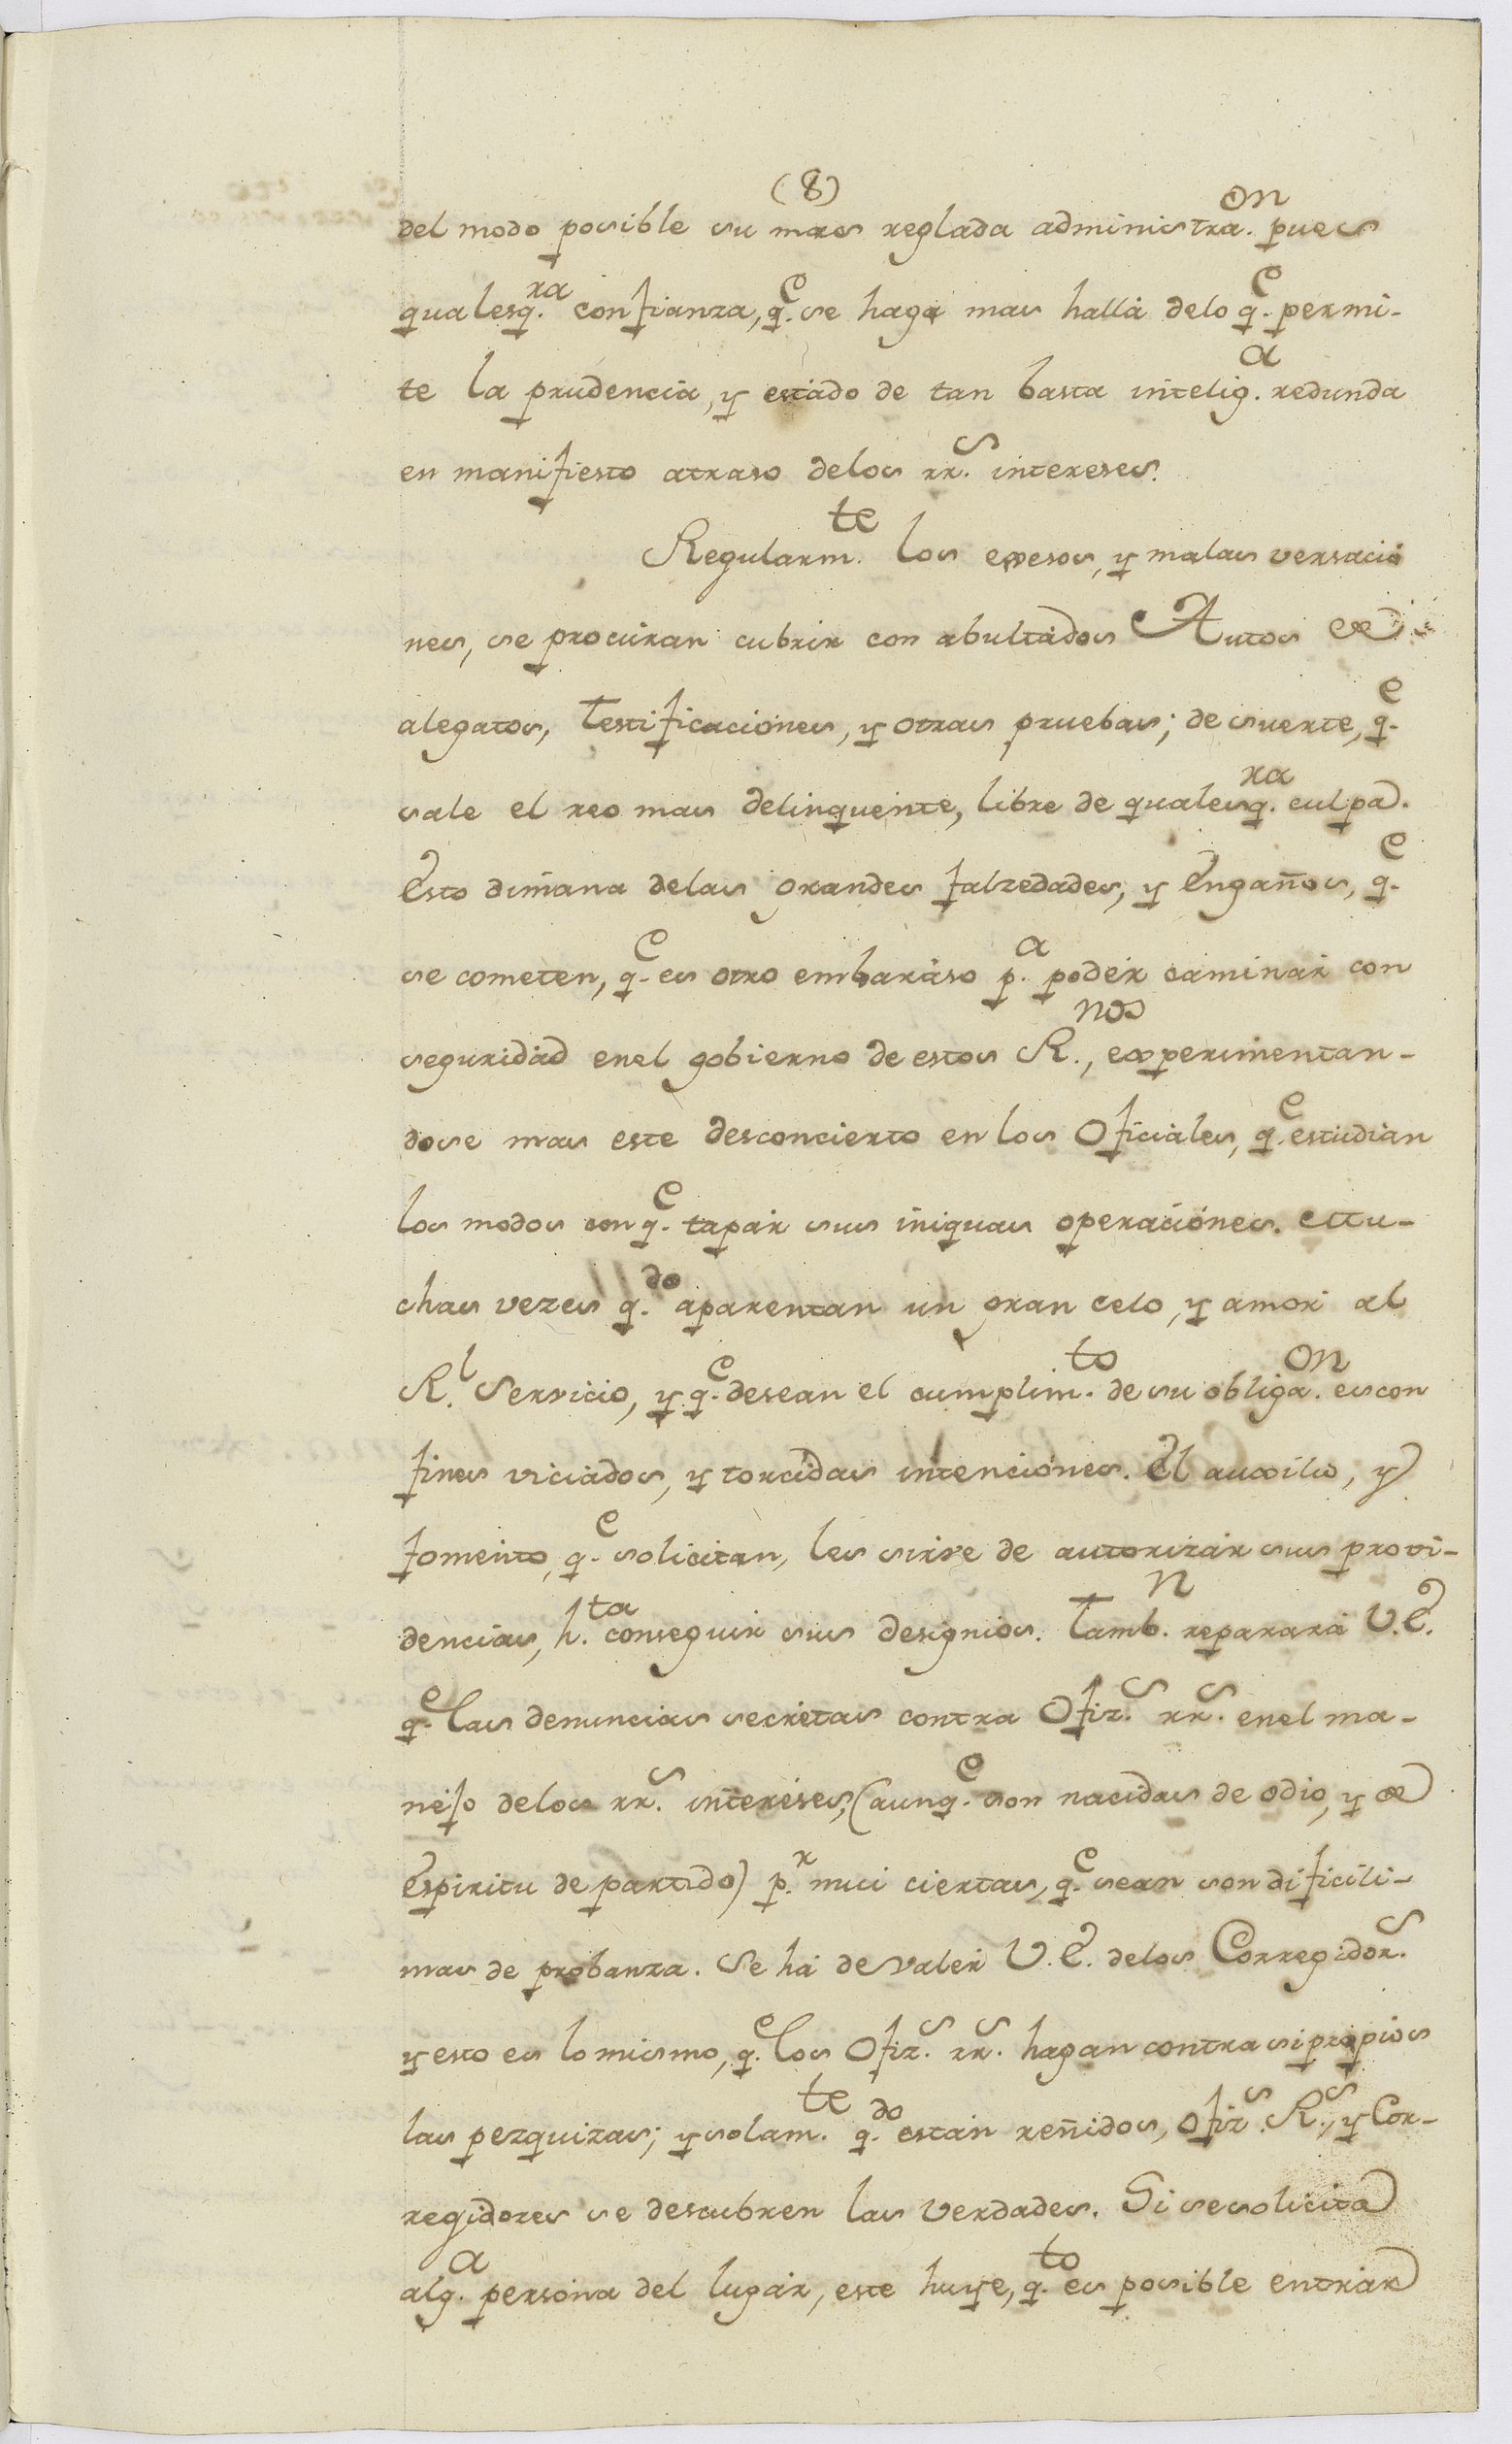 (8)
del modo posible su mas reglada administra.on pues
qualesq.ra confianza, q.e se haga mas hallá delo q.e permi-
te la prudencia, y estádo de tan basta intelig.a redunda
en manifiesto atraso delos rr.s intereses.
Regularm.te los exesos, y malas versacio
nes, se procuran cubrir con abultádos Autos de
alegatos, Testificaciones, y otras pruebas; de suerte, q.e
sale el reo mas delinquente, libre de qualesq.ra culpa.
Esto dimana delas grandes falzedades, y Engaños, q.e
se cometen, q.e es otro embaráso p.a podér caminár con
seguridád enel gobierno de estos R.nos, experimentan-
dose mas este desconcierto en los Oficiales, q.e estudian
los modos con q.e tapár sus iniquas operaciónes. Mu-
chas vezes q.do aparentan un gran celo, y amor al
R.l Servicio, y q.e desean el cumplim.to de su obliga.on es con
fines viciádos, y torcidas intenciónes. El auxilio, y
fomento, q.e solicitan, les sirve de autorizár sus provi-
dencias, h.ta conseguir sus designios. Tamb.n reparará V.E.
q.e las denuncias secretas contra Ofiz.s rr.s enel ma-
nejo delos rr.s interéses, (aunq.e son nacidas de odio, y de
Espiritu de partido) p.r mui ciertas, q.e sean son dificili-
mas de probanza. Se há de valér V.E. delos Corregidor.s
y esto es lo mismo, q.e los Ofiz.s rr.s hagan contra si propios
las pezquizas; y solam.te q.do están reñidos, Ofiz.s R.s, y Cor-
regidores se descubren las Verdades. Si se solicita
alg.a persona del lugár, este huye, q.to es posible entrár